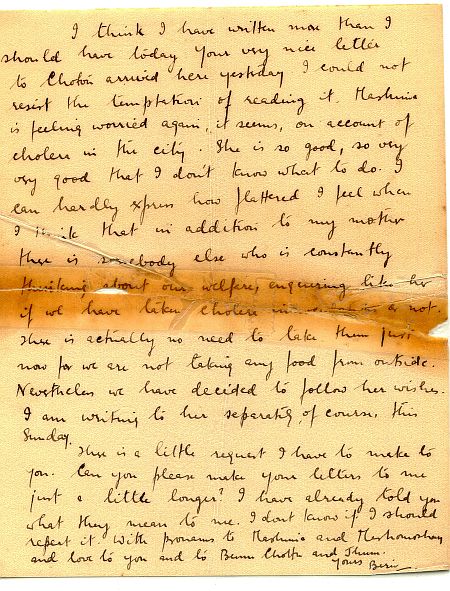 I think I have written more than I
should have today your very nice letter
to Choton arrived here yestday I could not
resist the temptation of reading it. Mashima
is feeling worried again, it seems, on account of
cholera in the city. She is so good, so very
very good that I don't know what to do. I
can hardly express how flattered I feel when
I think that in addition to my mother
there is somebody else who is constantly
thinking about our welfare, enquiring like her
if we have taken cholera or not.
There is actually no need to take them just
now for we are not taking any food from outside.
Nevertheless we have decided to follow her wishes.
I am writing to her separately, of course, this
Sunday.
There is a little request I have to make to
you. Can you please make your letters to me
just a little longer? I have already told you
what they mean to me. I dont know if I should
repeat it. With pronams to Mashima and
and love to you and to and
Yours